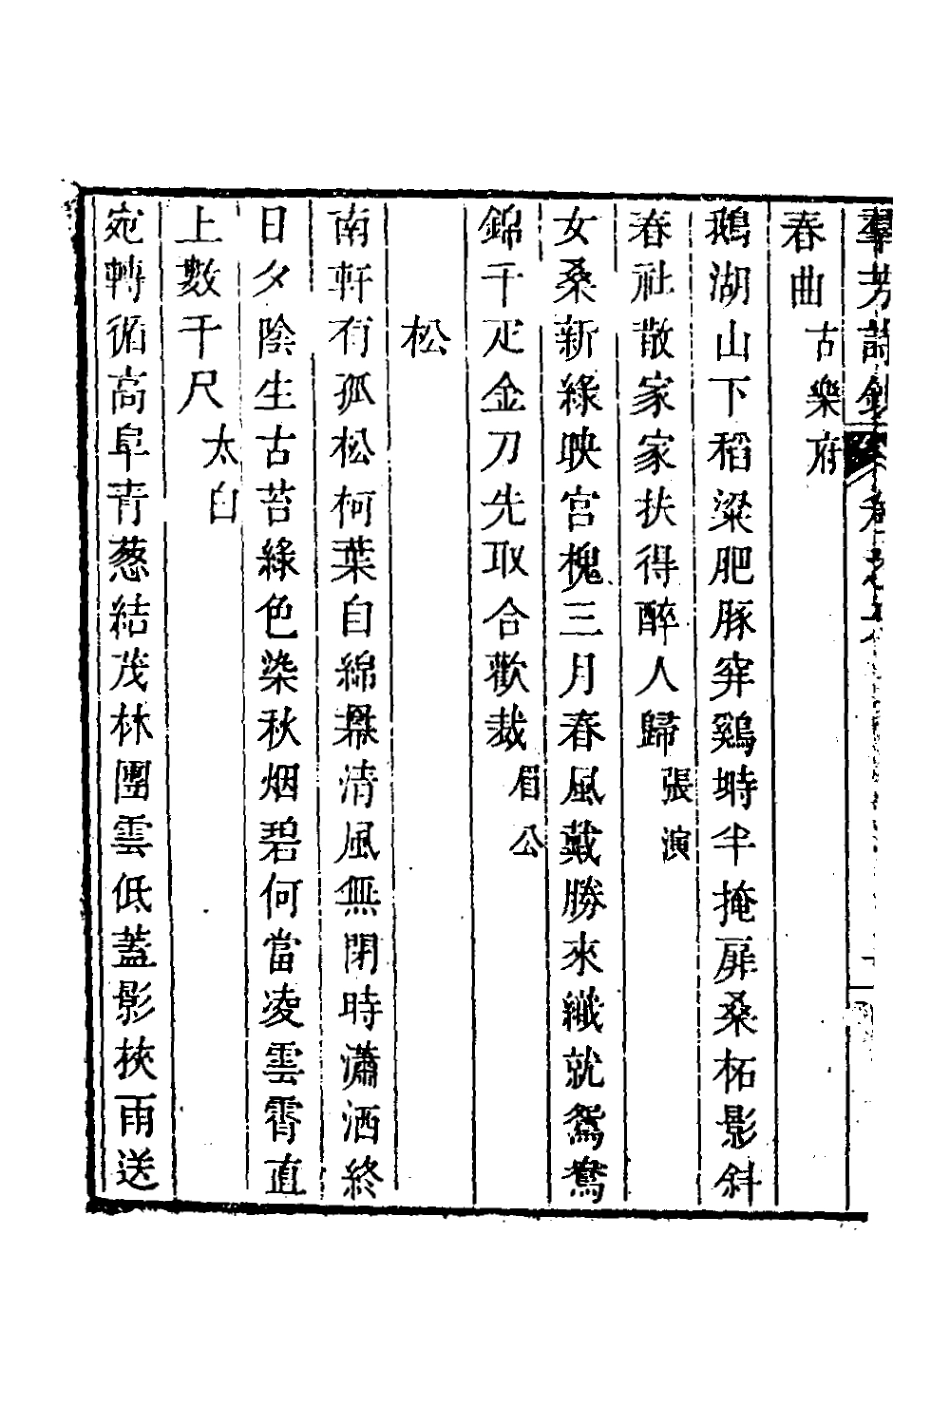 羣芳詩鈔
春曲古樂府
鵝湖山下稻粱肥豚穽鷄塒半掩扉桑柘影斜
春社散家家扶得醉人歸張演
女桑新綠映宮槐三月春風戴勝來織就鴛鴦
錦千疋金刀先取合歡裁眉公
松
南軒有孤松柯葉自綿羃清風無閉時瀟洒終
日夕陰生古苔綠色染秋烟碧何當凌雲霄直
上數千尺太白
宛轉循高阜青葱結茂林團雲低蓋影挾雨送